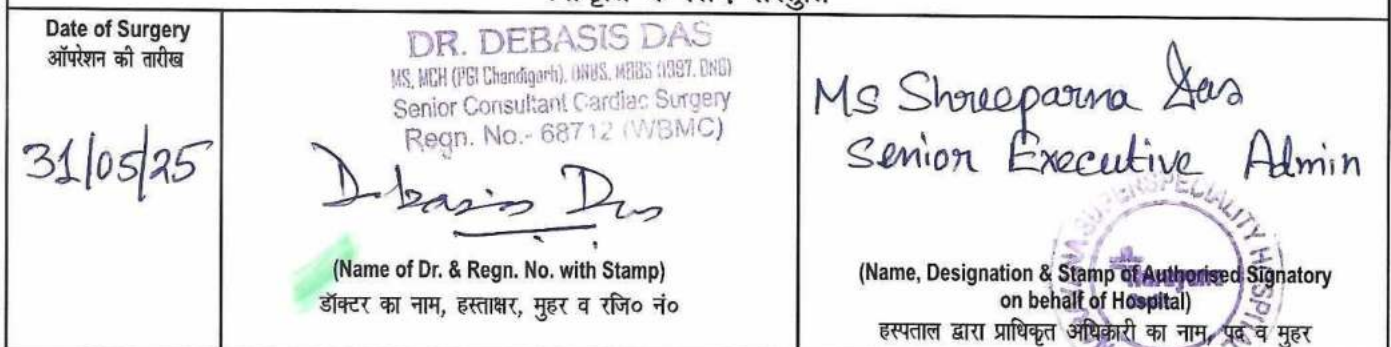 Date of Surgery
ऑपरेशन की तारीख
31/05/25
DR. DEBASIS DAS
MS, MCH (PGI Chandigarh), DNBS, MBBS
Senior Consultant Cardiac Surgery
Regn. No.- 68712 (WBMC)
Debasis Das
(Name of Dr. & Regn. No. with Stamp)
डॉक्टर का नाम, हस्ताक्षर, मुहर व रजि० नं०
Ms Shreeparna Das
Senior Executive Admin
SUPERSPECIALITY
Narayana
(Name, Designation & Stamp of Authorised Signatory
on behalf of Hospital)
हस्पताल द्वारा प्राधिकृत अधिकारी का नाम, पद व मुहर